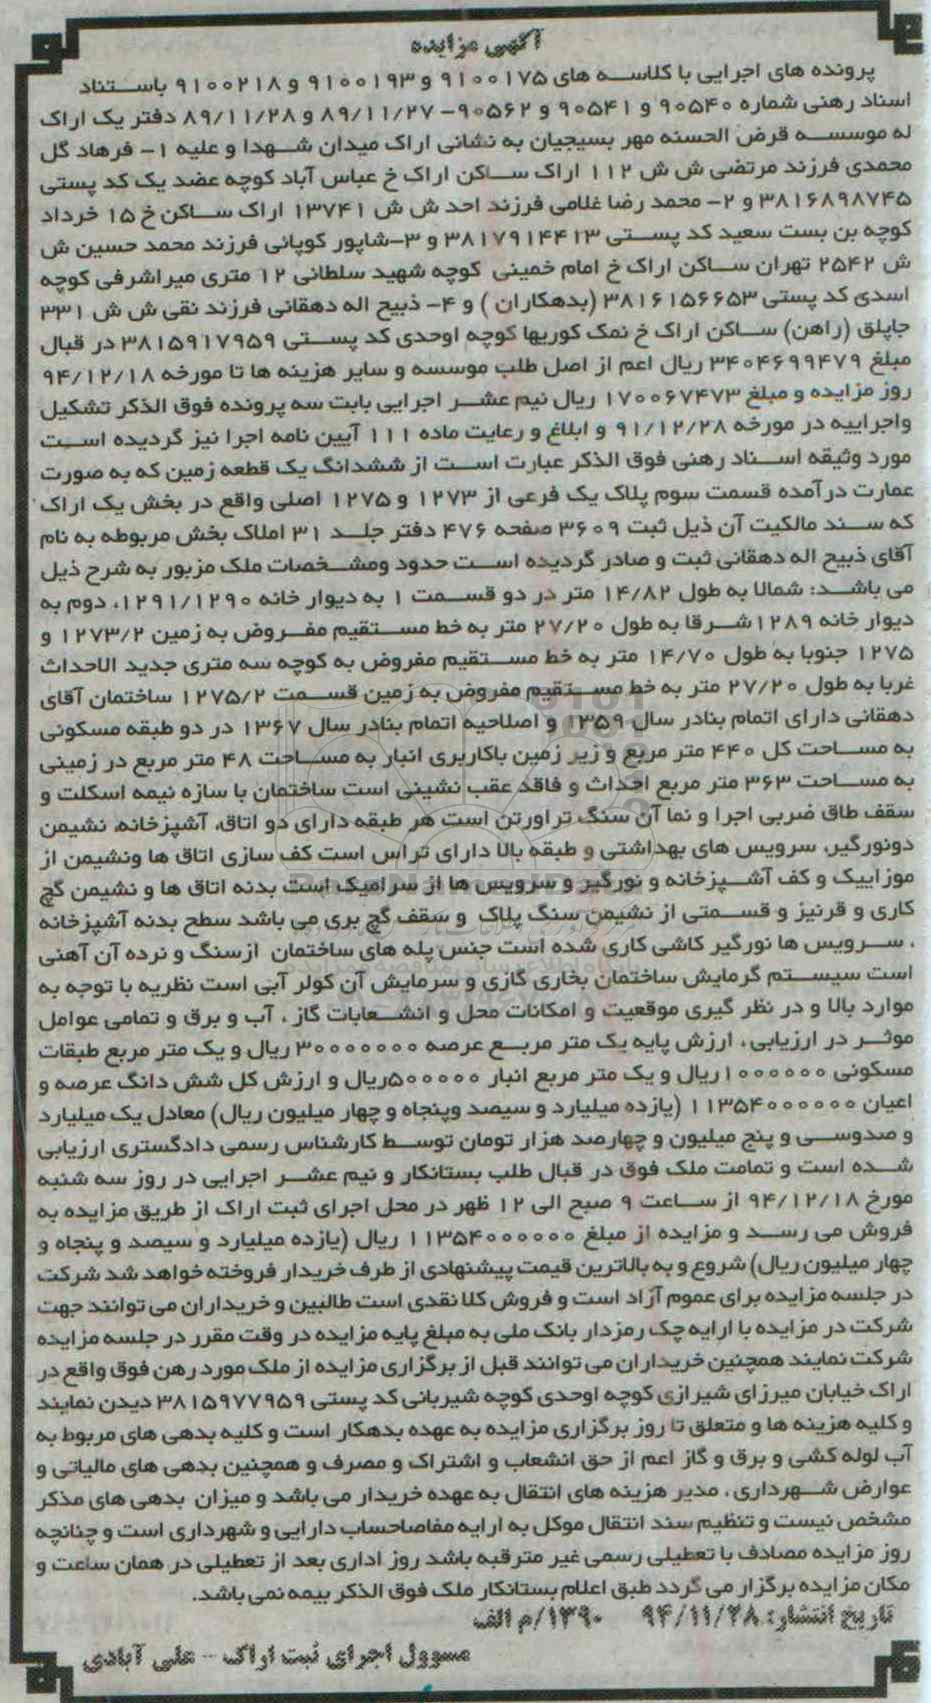 آگهی مزایده
پرونده های اجرایی با کلاسه های ۹۱۰۰۱۷۵ و ۹۱۰۰۱۹۳ و ۹۱۰۰۲۱۸ باستناد
اسناد رهنی شماره ۹۰۵۴۰ و ۹۰۵۴۱ و ۹۰۵۶۲- ۸۹/۱۱/۲۷ و ۸۹/۱۱/۲۸ دفتر یک اراک
له موسسه قرض الحسنه مهر بسیجیان به نشانی اراک میدان شهدا و علیه ۱- فرهاد گل
محمدی فرزند مرتضی ش ش ۱۱۲ اراک ساکن اراک خ عباس آباد کوچه عضد یک کد پستی
۳۸۱۶۸۹۸۷۴۵ و ۲- محمد رضا غلامی فرزند احد ش ش ۱۳۷۴۱ اراک ساکن خ ۱۵ خرداد
کوچه بن بست سعید کد پستی ۳۸۱۷۹۱۴۴۱۳ و ۳-شاپور کوپائی فرزند محمد حسین ش
ش ۲۵۴۲ تهران ساکن اراک خ امام خمینی کوچه شهید سلطانی ۱۲ متری میراشرفی کوچه
اسدی کد پستی ۳۸۱۶۱۵۶۶۵۳ (بدهکاران ) و ۴- ذبیح اله دهقانی فرزند نقی ش ش ۳۳۱
جاپلق (راهن) ساکن اراک خ نمک کوریها کوچه اوحدی کد پستی ۳۸۱۵۹۱۷۹۵۹ در قبال
مبلغ ۳۴۰۴۶۹۹۴۷۹ ریال اعم از اصل طلب موسسه و سایر هزینه ها تا مورخه ۹۴/۱۲/۱۸
روز مزایده و مبلغ ۱۷۰۰۶۷۴۷۳ ریال نیم عشر اجرایی بابت سه پرونده فوق الذکر تشکیل
واجراییه در مورخه ۹۱/۱۲/۲۸ و ابلاغ و رعایت ماده ۱۱۱ آیین نامه اجرا نیز گردیده است
مورد وثیقه اسناد رهنی فوق الذکر عبارت است از ششدانگ یک قطعه زمین که به صورت
عمارت درآمده قسمت سوم پلاک یک فرعی از ۱۲۷۳ و ۱۲۷۵ اصلی واقع در بخش یک اراک
که سند مالکیت آن ذیل ثبت ۳۶۰۹ صفحه ۴۷۶ دفتر جلد ۳۱ املاک بخش مربوطه به نام
آقای ذبیح اله دهقانی ثبت و صادر گردیده است حدود ومشخصات ملک مزبور به شرح ذیل
می باشد: شمالا به طول ۱۴/۸۲ متر در دو قسمت ۱ به دیوار خانه ۱۲۹۱/۱۲۹۰، دوم به
دیوار خانه ۱۲۸۹ شرقا به طول ۲۷/۲۰ متر به خط مستقیم مفروض به زمین ۱۲۷۳/۲ و
۱۲۷۵ جنوبا به طول ۱۴/۷۰ متر به خط مستقیم مفروض به کوچه سه متری جدید الاحداث
غربا به طول ۲۷/۲۰ متر به خط مستقیم مفروض به زمین قسمت ۱۲۷۵/۲ ساختمان آقای
دهقانی دارای اتمام بنادر سال ۱۳۵۹ و اصلاحیه اتمام بنادر سال ۱۳۶۷ در دو طبقه مسکونی
به مساحت کل ۴۴۰ متر مربع و زیر زمین باکاربری انبار به مساحت ۴۸ متر مربع در زمینی
به مساحت ۳۶۳ متر مربع احداث و فاقد عقب نشینی است ساختمان با سازه نیمه اسکلت و
سقف طاق ضربی اجرا و نما آن سنگ تراورتن است هر طبقه دارای دو اتاق، آشپزخانه، نشیمن
دونورگیر، سرویس های بهداشتی و طبقه بالا دارای تراس است کف سازی اتاق ها ونشیمن از
موزاییک و کف آشپزخانه و نورگیر و سرویس ها از سرامیک است بدنه اتاق ها و نشیمن گچ
کاری و قرنیز و قسمتی از نشیمن سنگ پلاک و سقف گچ بری می باشد سطح بدنه آشپزخانه
، سرویس ها نورگیر کاشی کاری شده است جنس پله های ساختمان ازسنگ و نرده آن آهنی
است سیستم گرمایش ساختمان بخاری گازی و سرمایش آن کولر آبی است نظریه با توجه به
موارد بالا و در نظر گیری موقعیت و امکانات محل و انشعابات گاز ، آب و برق و تمامی عوامل
موثر در ارزیابی، ارزش پایه یک متر مربع عرصه ۳۰۰۰۰۰۰۰ ریال و یک متر مربع طبقات
مسکونی ۱۰۰۰۰۰۰ ریال و یک متر مربع انبار ۵۰۰۰۰۰ریال و ارزش کل شش دانگ عرصه و
اعیان ۱۱۳۵۴۰۰۰۰۰۰ (یازده میلیارد و سیصد وپنجاه و چهار میلیون ریال) معادل یک میلیارد
و صدوسی و پنج میلیون و چهارصد هزار تومان توسط کارشناس رسمی دادگستری ارزیابی
شده است و تمامت ملک فوق در قبال طلب بستانکار و نیم عشر اجرایی در روز سه شنبه
مورخ ۹۴/۱۲/۱۸ از ساعت ۹ صبح الی ۱۲ ظهر در محل اجرای ثبت اراک از طریق مزایده به
فروش می رسد و مزایده از مبلغ ۱۱۳۵۴۰۰۰۰۰۰ ریال (یازده میلیارد و سیصد و پنجاه و
چهار میلیون ریال) شروع و به بالاترین قیمت پیشنهادی از طرف خریدار فروخته خواهد شد شرکت
در جلسه مزایده برای عموم آزاد است و فروش کلا نقدی است طالبین و خریداران می توانند جهت
شرکت در مزایده با ارایه چک رمزدار بانک ملی به مبلغ پایه مزایده در وقت مقرر در جلسه مزایده
شرکت نمایند همچنین خریداران می توانند قبل از برگزاری مزایده از ملک مورد رهن فوق واقع در
اراک خیابان میرزای شیرازی کوچه اوحدی کوچه شیربانی کد پستی ۳۸۱۵۹۷۷۹۵۹ دیدن نمایند
و کلیه هزینه ها و متعلق تا روز برگزاری مزایده به عهده بدهکار است و کلیه بدهی های مربوط به
آب لوله کشی و برق و گاز اعم از حق انشعاب و اشتراک و مصرف و همچنین بدهی های مالیاتی و
عوارض شهرداری، مدیر هزینه های انتقال به عهده خریدار می باشد و میزان بدهی های مذکر
مشخص نیست و تنظیم سند انتقال موکل به ارایه مفاصاحساب دارایی و شهرداری است و چنانچه
روز مزایده مصادف با تعطیلی رسمی غیر مترقبه باشد روز اداری بعد از تعطیلی در همان ساعت و
مکان مزایده برگزار می گردد طبق اعلام بستانکار ملک فوق الذکر بیمه نمی باشد.
تاریخ انتشار: ۹۴/۱۱/۲۸ ۱۳۹۰/م الف
مسوول اجرای ثبت اراک - علی آبادی